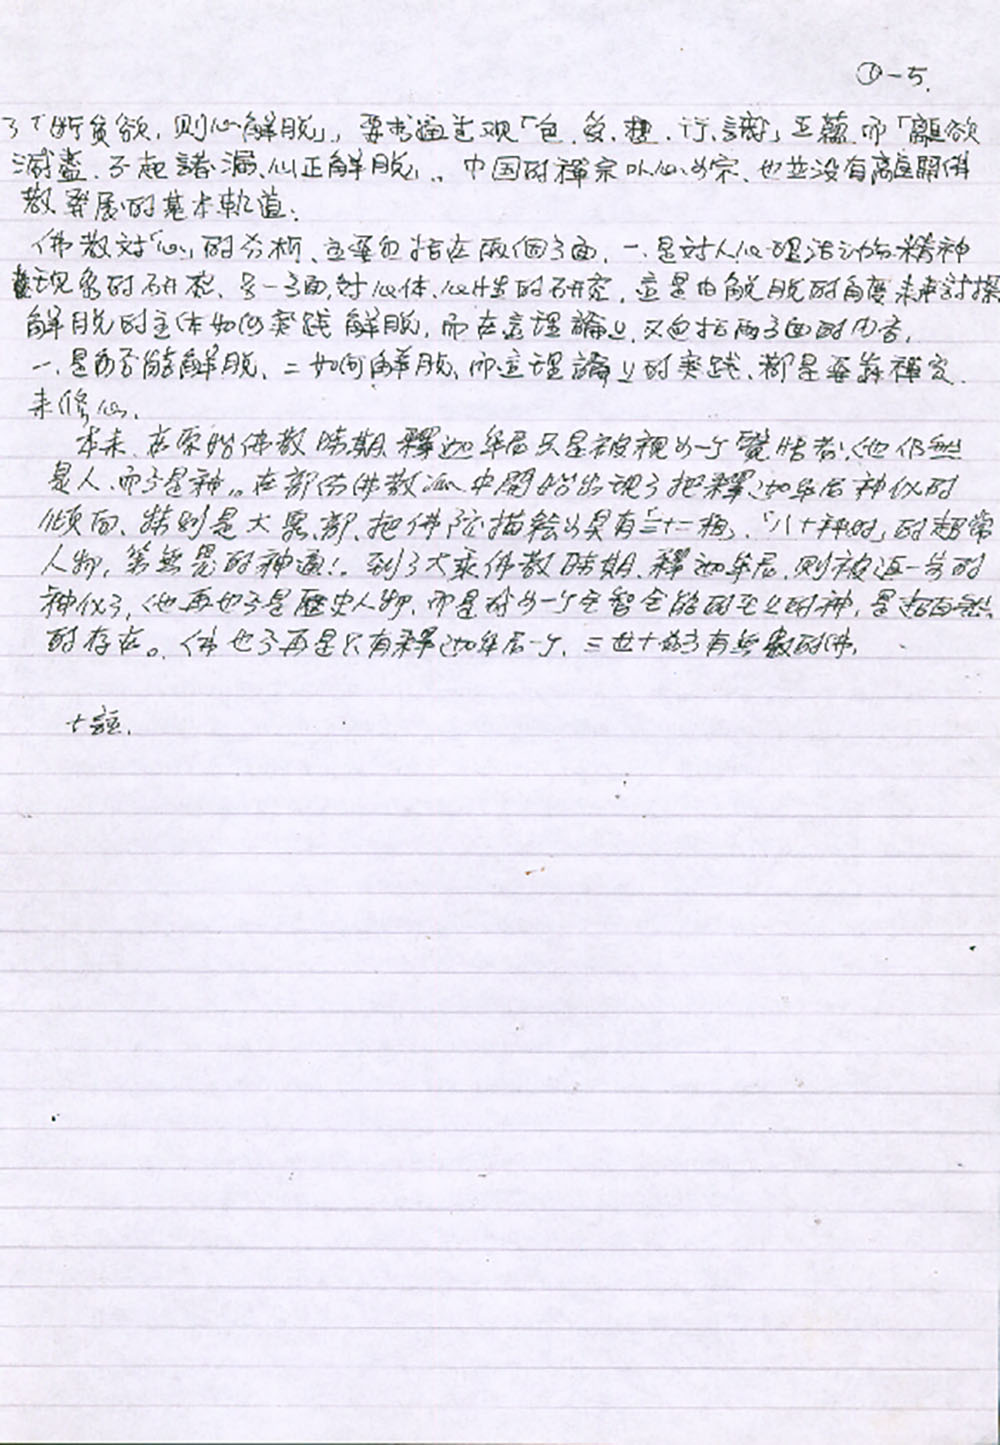 ①-5.
了「断貪欲，則心解脱」，要求通过观「色、受、想、行、識」五蘊而「離欲
滅盡，不起諸漏、心正解脱」。中国的禪宗以心为宗，也並没有離開佛
教発展的基本軌道。
佛教対「心」的分析、主要包括在兩個方面，一.是対人心理活动的精神
現象的研究、另一方面，対心体、心性的研究，這是由解脱的角度来討探
解脱的主体如何実践解脱，而在這理論上，又包括兩方面的内容，
一.是否能解脱、二如何解脱、而這理論上的実践、都是要靠禪定
来修心.
本来，在原始佛教時期，釋迦牟尼只是被視为一个覺悟者，他仍然
是人，而不是神。在部派佛教派中開始出现了把釋迦牟尼神化的
傾向、特别是大眾部、把佛陀描絵为具有「三十二相」、「八十种好」的超常
人物，第無畏的神通！到了大乘佛教時期，釋迦牟尼，則被進一步的
神化了，他再也不是歷史人物，而是成为一个全智全能的至上的神，是超自然
的存在。佛也不再是只有釋迦牟尼一个，三世十方有無數的佛，